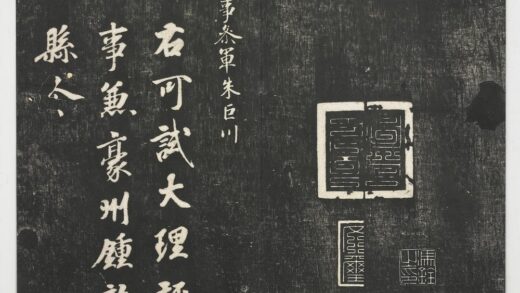 事參軍朱巨川
右可試大理評
事兼豪州鍾
縣令